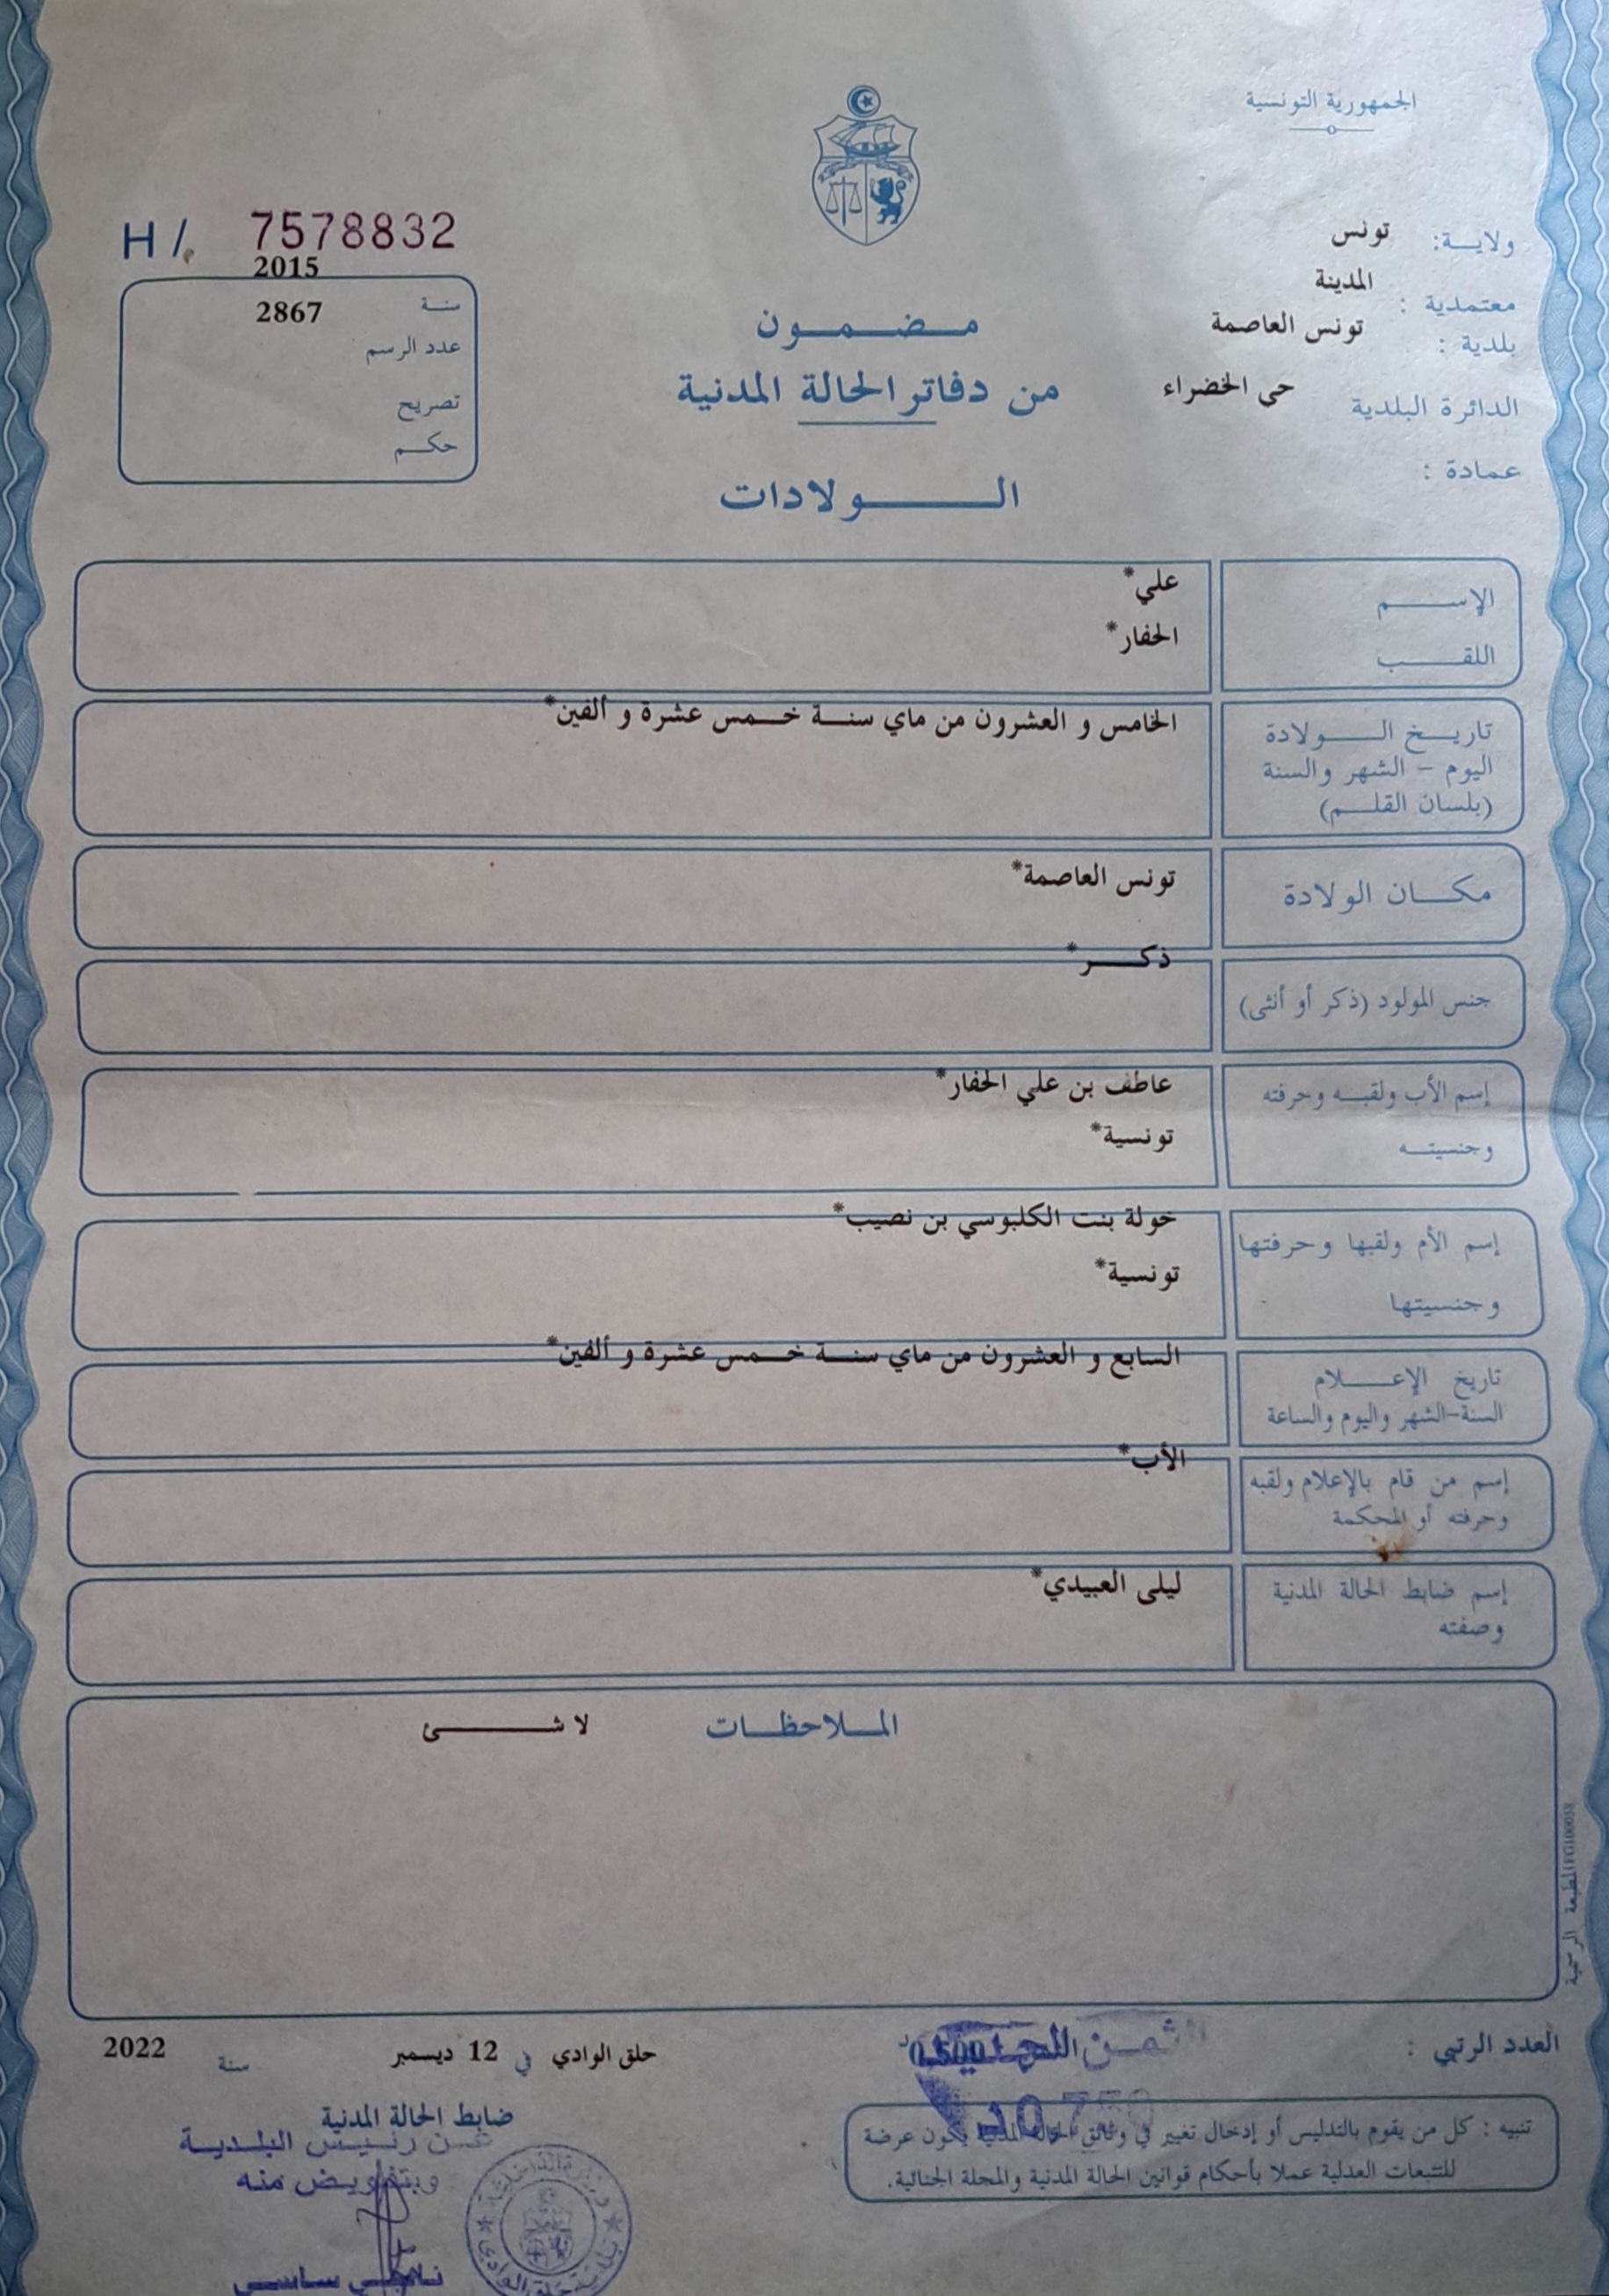 الجمهورية التونسية
H/. 7578832
ولايــة: تونس
معتمدية : المدينة
بلدية : تونس العاصمة
الدائرة البلدية حى الخضراء
عمادة :
2015
سنة 2867
عدد الرسم
تصريح
حكم
مضمون
من دفاتر الحالة المدنية
الولادات
الإسم علي*
اللقب الحفار*
تاريخ الولادة الخامس و العشرون من ماي سنة خمس عشرة و ألفين*
اليوم - الشهر والسنة
(بلسان القلم)
مكان الولادة تونس العاصمة*
جنس المولود (ذكر أو أنثى) ذكر*
إسم الأب ولقبه وحرفته عاطف بن علي الحفار*
وجنسيته تونسية*
إسم الأم ولقبها وحرفتها خولة بنت الكلبوسي بن نصيب*
وجنسيتها تونسية*
تاريخ الإعلام السابع و العشرون من ماي سنة خمس عشرة و ألفين*
السنة-الشهر واليوم والساعة
إسم من قام بالإعلام ولقبه الأب*
وحرفته أو المحكمة
إسم ضابط الحالة المدنية ليلى العبيدي*
وصفته
الملاحظات لا شئ
المطبعة الرسمية
العدد الرتبي :
حلق الوادي في 12 ديسمبر سنة 2022
ضابط الحالة المدنية
عن رئيس البلدية
وبتفويض منه
ساسي
تنبيه : كل من يقوم بالتدليس أو إدخال تغيير في وثائق الحالة المدنية يكون عرضة
للتتبعات العدلية عملا بأحكام قوانين الحالة المدنية والمجلة الجنائية.